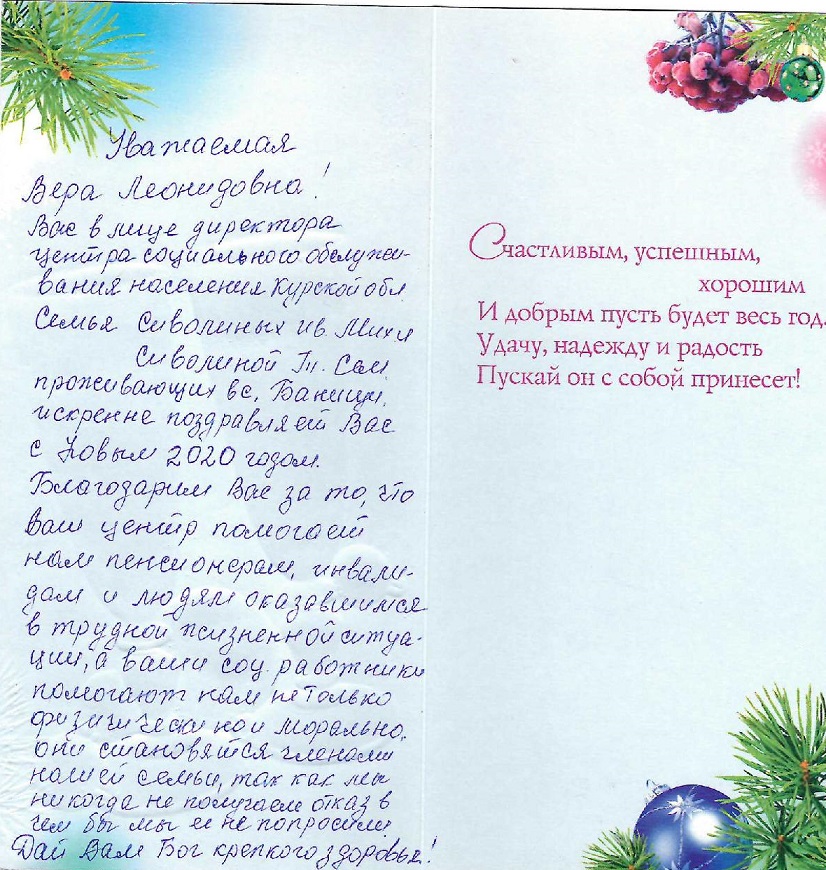 Уважаемая
Вера Леонидовна!
Вас в лице директора
центра социального обслужи-
вания населения Курской обл.
Семья Сиволиных ив.
Сиволиной
проживающих в с. Баницы,
искренне поздравляет Вас
с Новым 2020 годом.
Благодарим Вас за то, что
Ваш центр помогает
нам пенсионерам, инвали-
дам и людям оказавшимся
в трудной жизненной ситуа-
ции, а ваши соц. работники
помогают нам не только
физически но и морально.
они становятся членами
нашей семьи, так как мы
никогда не получаем отказ в
чем бы мы ее не попросили.
Дай Вам Бог крепкого здоровья!
Счастливым, успешным,
хорошим
И добрым пусть будет весь год.
Удачу, надежду и радость
Пускай он с собой принесет!